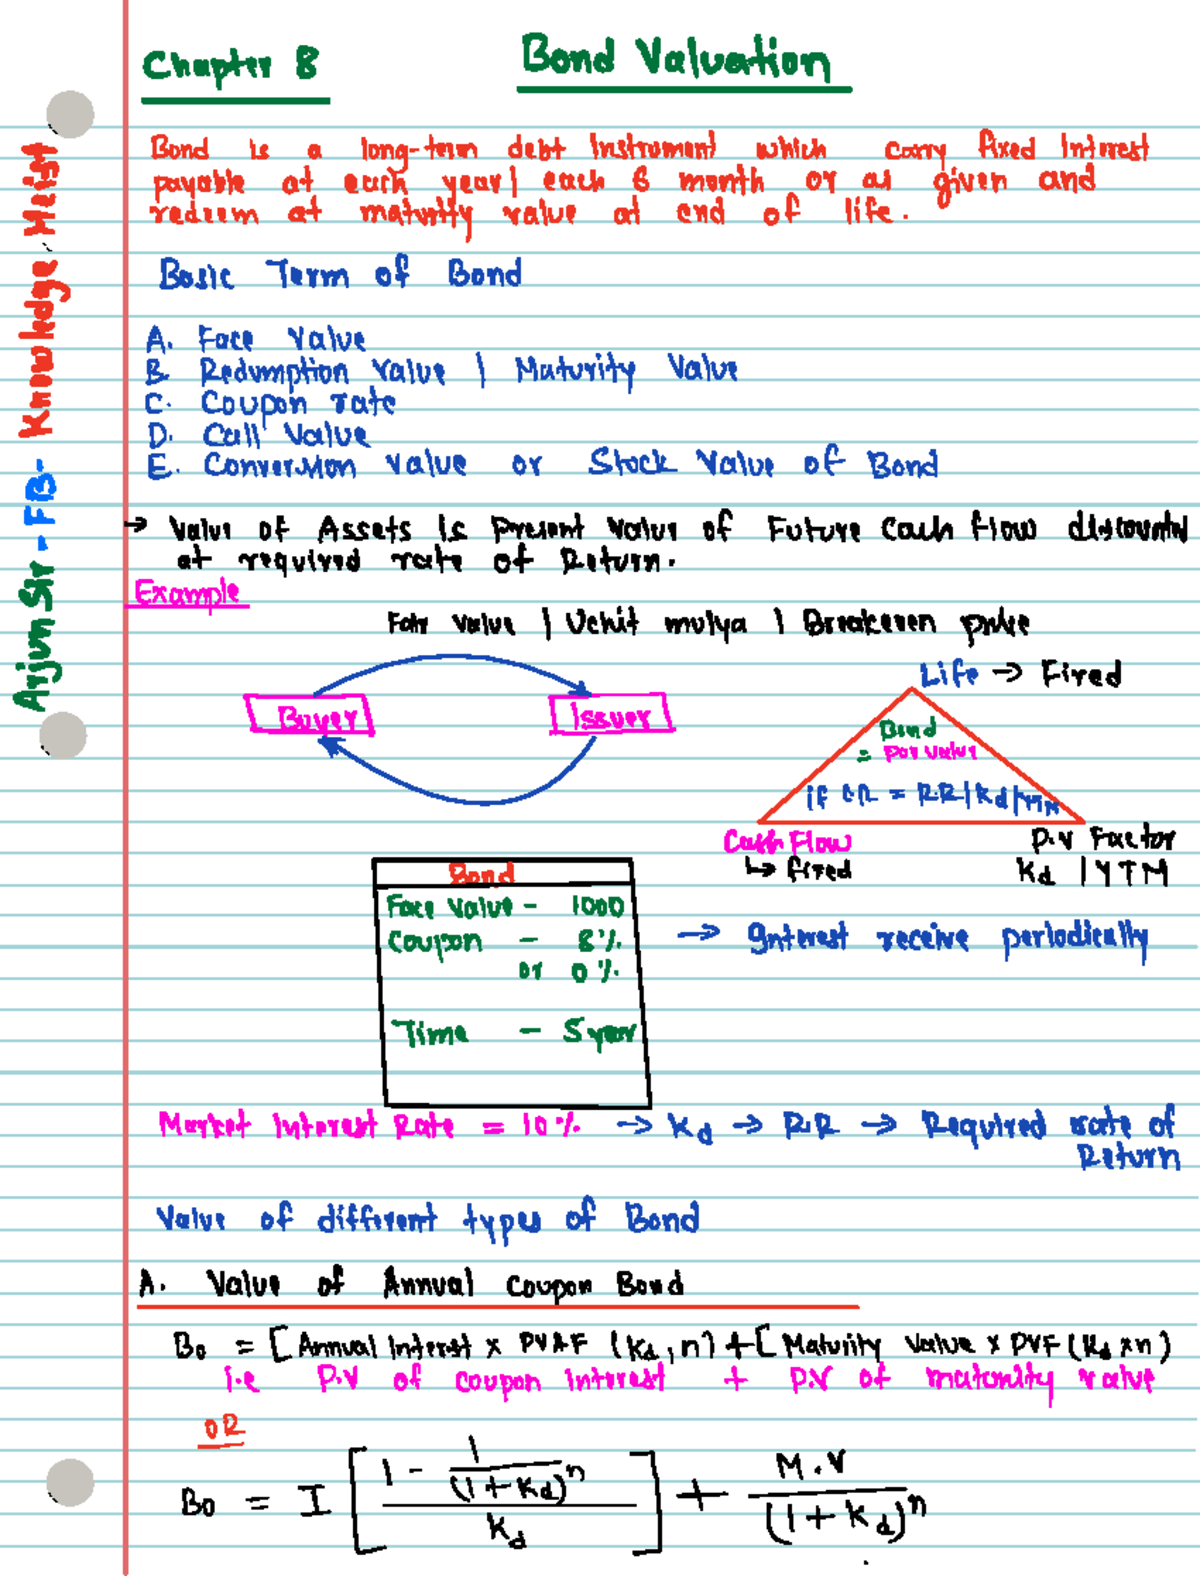 Chapter 8
Bond Valuation
Bond is a long-term debt Instrument which carry fixed Interest
payable at each year| each 6 month or as given and
redeem at maturity value at end of life.
Basic Term of Bond
A. Face Value
B. Redumption Value | Maturity Value
C. Coupon rate
D. Call Value
E. Conversion Value or Stock Value of Bond
→ Value of Assets is Present Value of Future Cash flow discounted
at required rate of Return.
Example
Fair Value | Uchit mulya | Breakeven price
Life → Fixed
Buyer
Issuer
Bond
= Par Value
if CR = R.R|Kd|YTM
Cash Flow
↳ fixed
P.V Factor
Kd | YTM
Bond
Face Value - 1000
Coupon - 8%
or 0%
Time - 5 year
→ Interest receive periodically
Market Interest Rate = 10% → Kd → R.R → Required rate of
Return
Value of different types of Bond
A. Value of Annual Coupon Bond
B₀ = [Annual Interest × PVAF (Kd, n) + [Maturity Value × PVF (Kd × n)
i.e P.V of coupon Interest + P.V of maturity value
OR
B₀ = I [ 1 - 1/(1+Kd)ⁿ / Kd ] + M.V/(1+Kd)ⁿ
Arjun Sir - FIB - Knowledge Meist